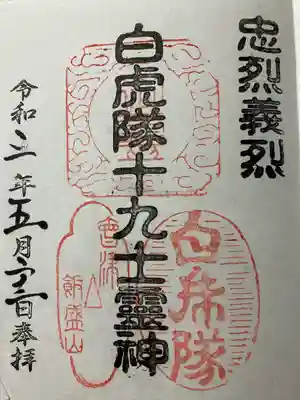 忠烈義烈
白虎隊十九士靈神
白虎隊
會津
飯盛山
令和二年五月 日奉拝